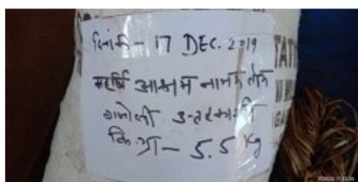 दिनांक - 17 DEC. 2019
महर्षि आश्रम नामक तोक
गाजोली उत्तरकाशी
कि.ग्रा - 5.5 Kg
TAT